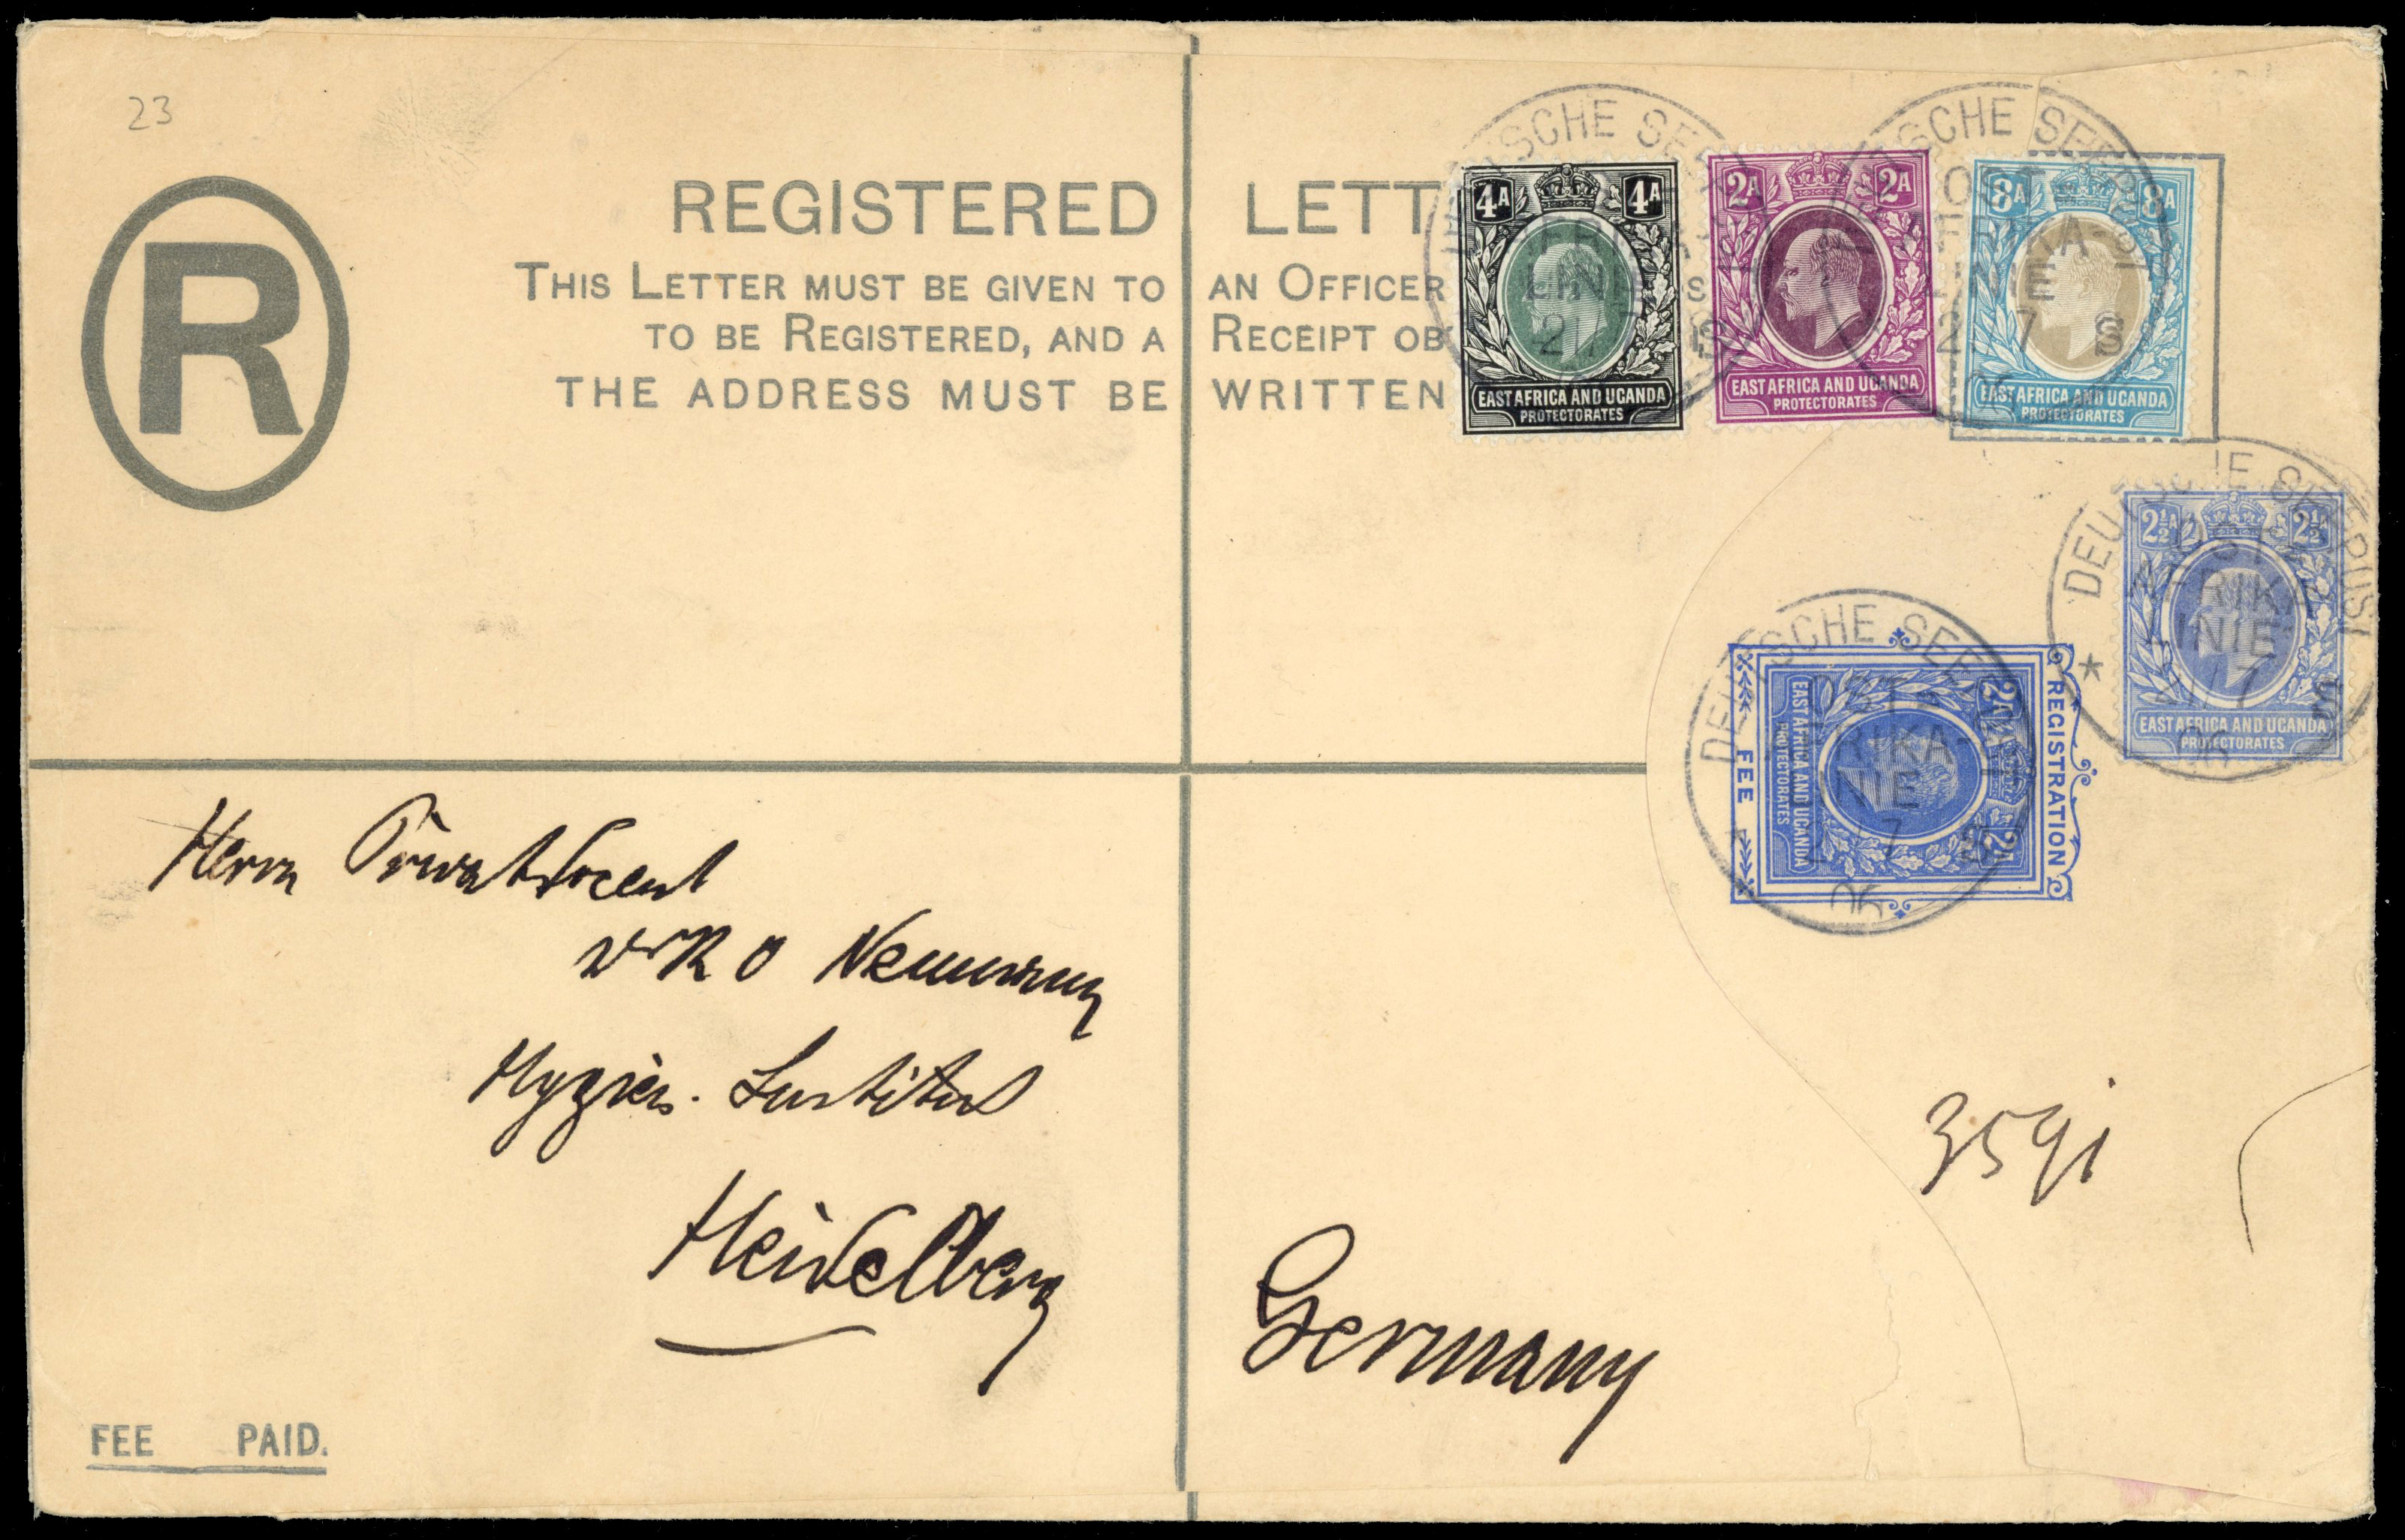 23
R
REGISTERED LETT
THIS LETTER MUST BE GIVEN TO AN OFFICER
TO BE REGISTERED, AND A RECEIPT OB
THE ADDRESS MUST BE WRITTEN
4A 4A
EAST AFRICA AND UGANDA
PROTECTORATES
2A 2A
EAST AFRICA AND UGANDA
PROTECTORATES
8A 8A
EAST AFRICA AND UGANDA
PROTECTORATES
2½A 2½A
EAST AFRICA AND UGANDA
PROTECTORATES
DEUTSCHE SEEPOST
OST-
AFRIKA-
LINIE
21/7
06
S
REGISTRATION
FEE
2A 2A
EAST AFRICA AND UGANDA
PROTECTORATES
Herrn Privatdocent
Dr R O Neumann
Hygien. Institut
Heidelberg
Germany
FEE PAID.